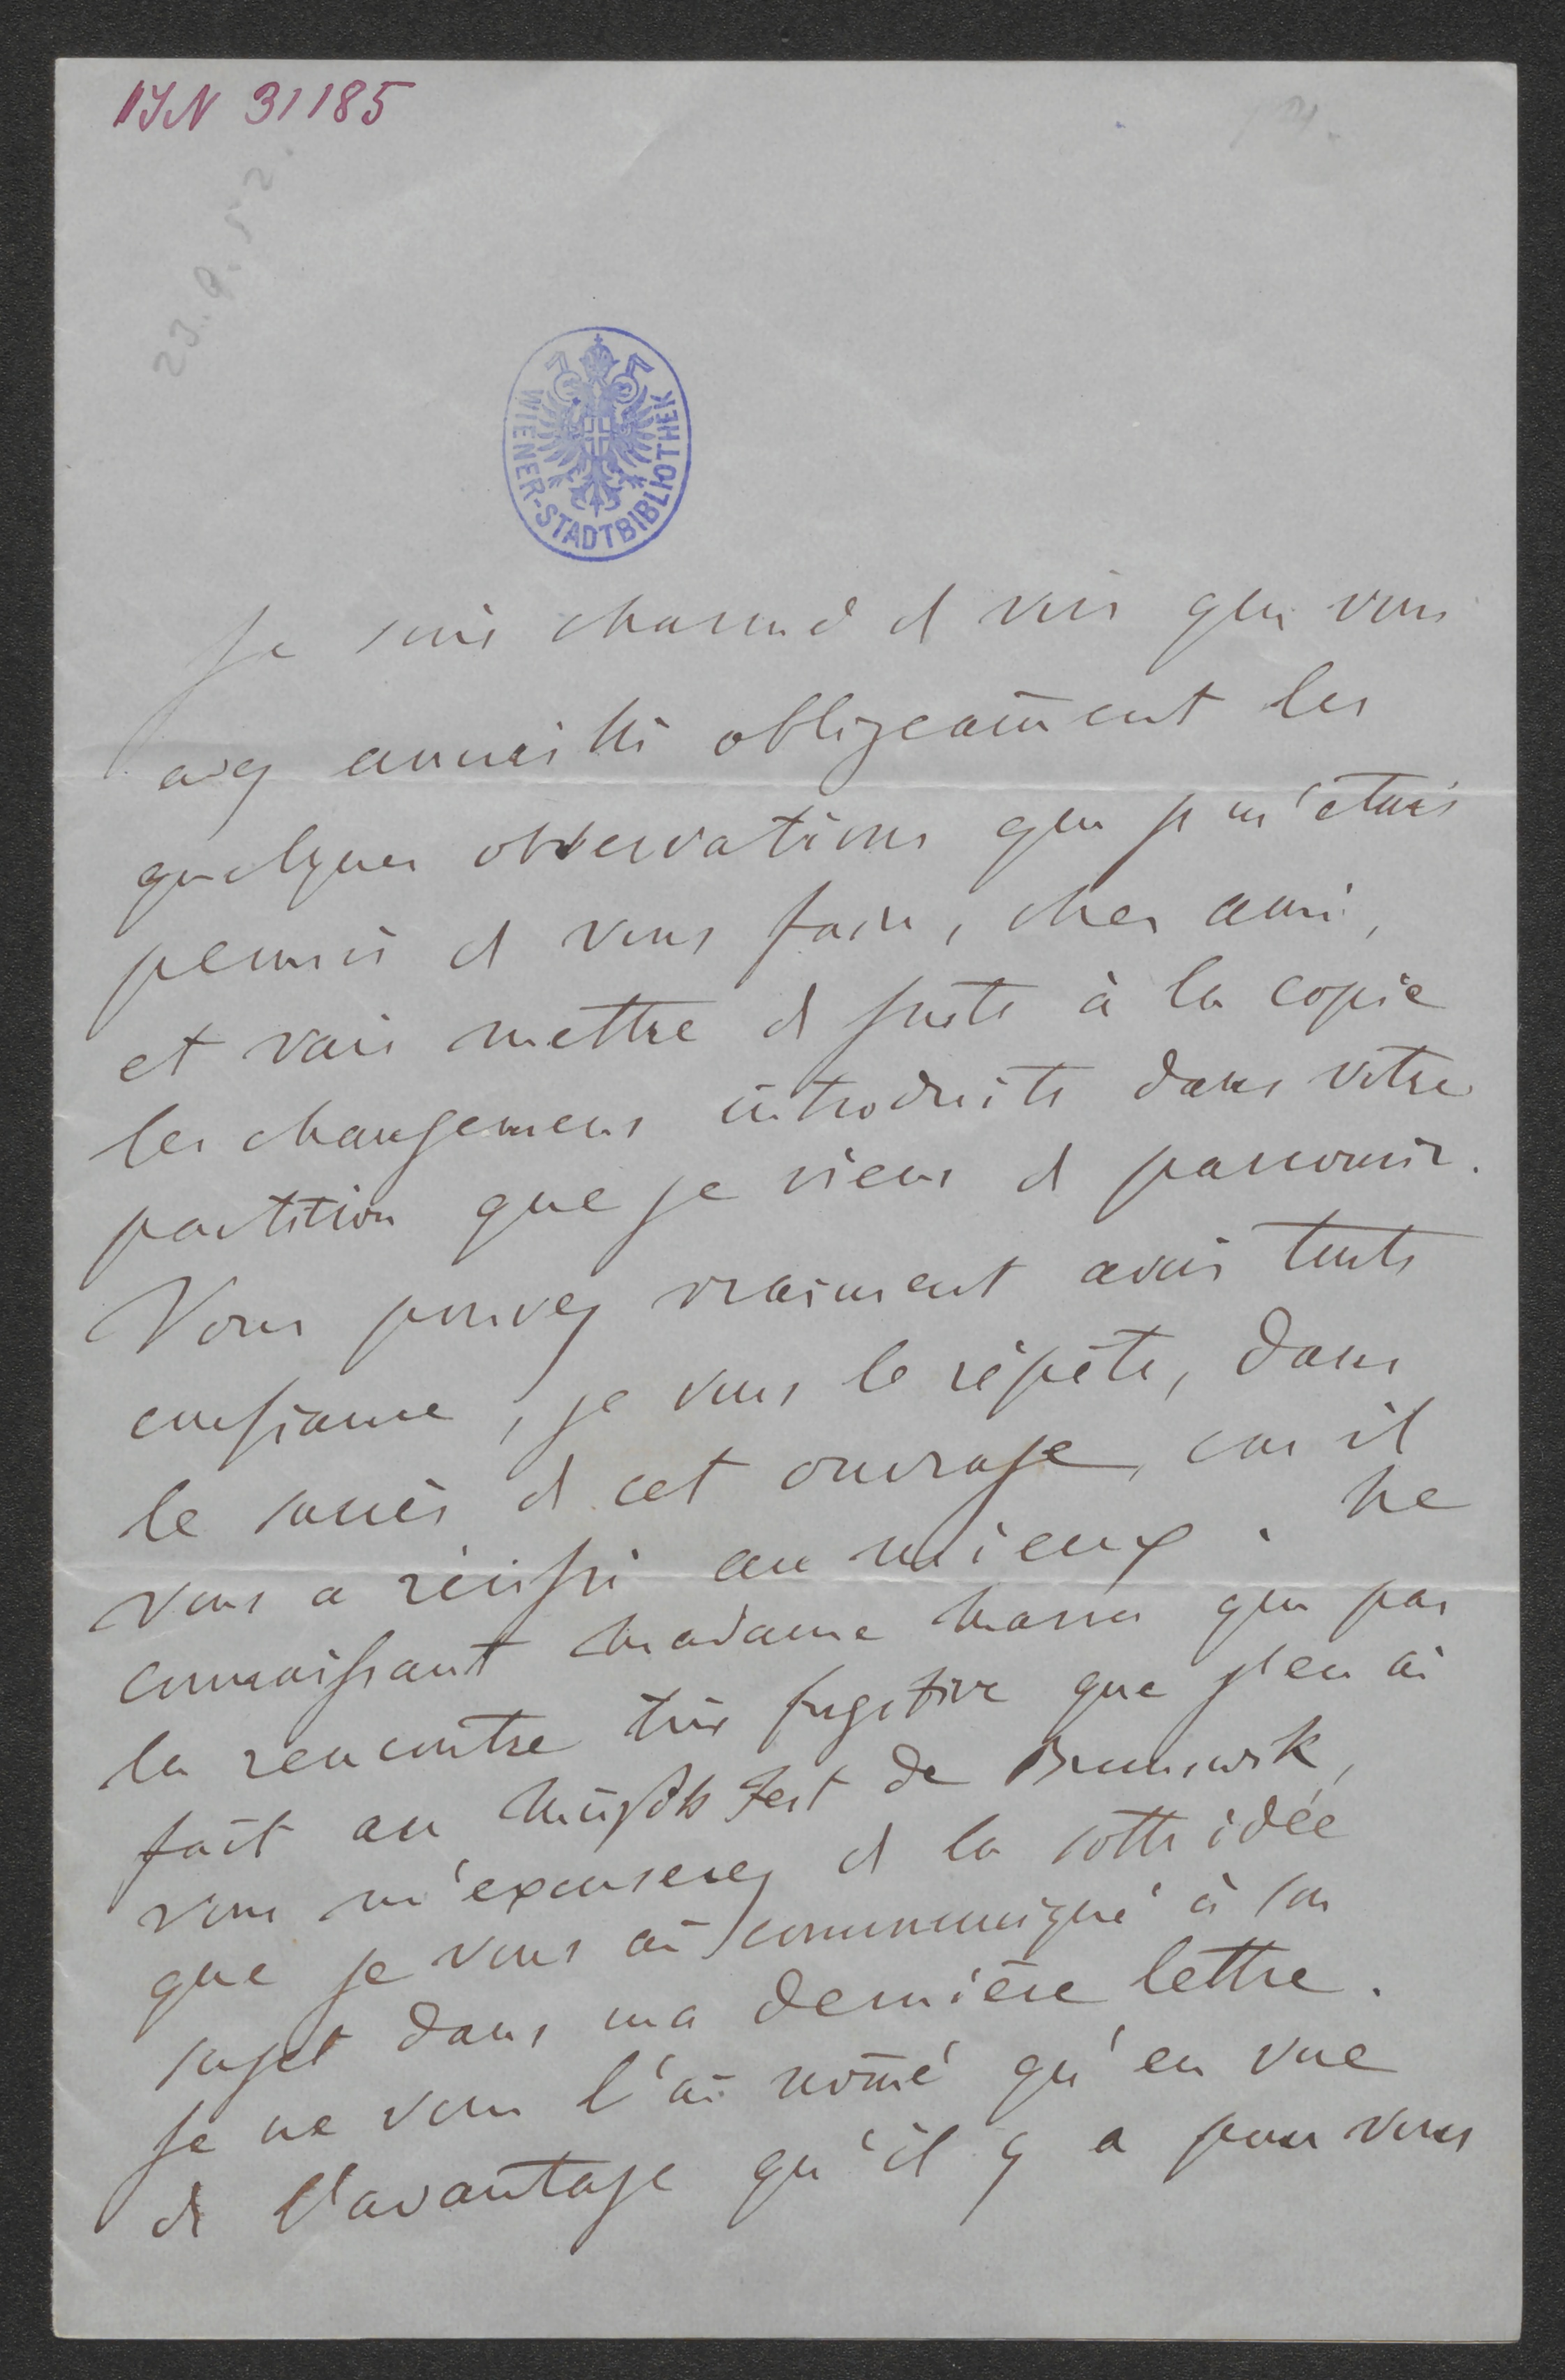 IJN 31185
23.9.52.
WIENER-STADTBIBLIOTHEK
Je suis charmé de voir que vous
avez accueilli obligeam̄ent les
quelques observations que je m'étais
permis de vous faire, cher ami,
et vais mettre de suite à la copie
les changemens introduits dans votre
partition que je viens de parcourir.
Vous pouvez vraiment avoir toute
confiance, je vous le répète, dans
le succès de cet ouvrage, car il
vous a réussi au mieux. Ne
connaissant Madame que par
la rencontre très fugitive que j'en ai
fait au Musik Fest de Brunswik,
vous m'excuserez de la sotte idée
que je vous ai communiqué à son
sujet dans ma dernière lettre.
Je ne vous l'ai nom̄é qu'en vue
de l'avantage qu'il y a pour vous